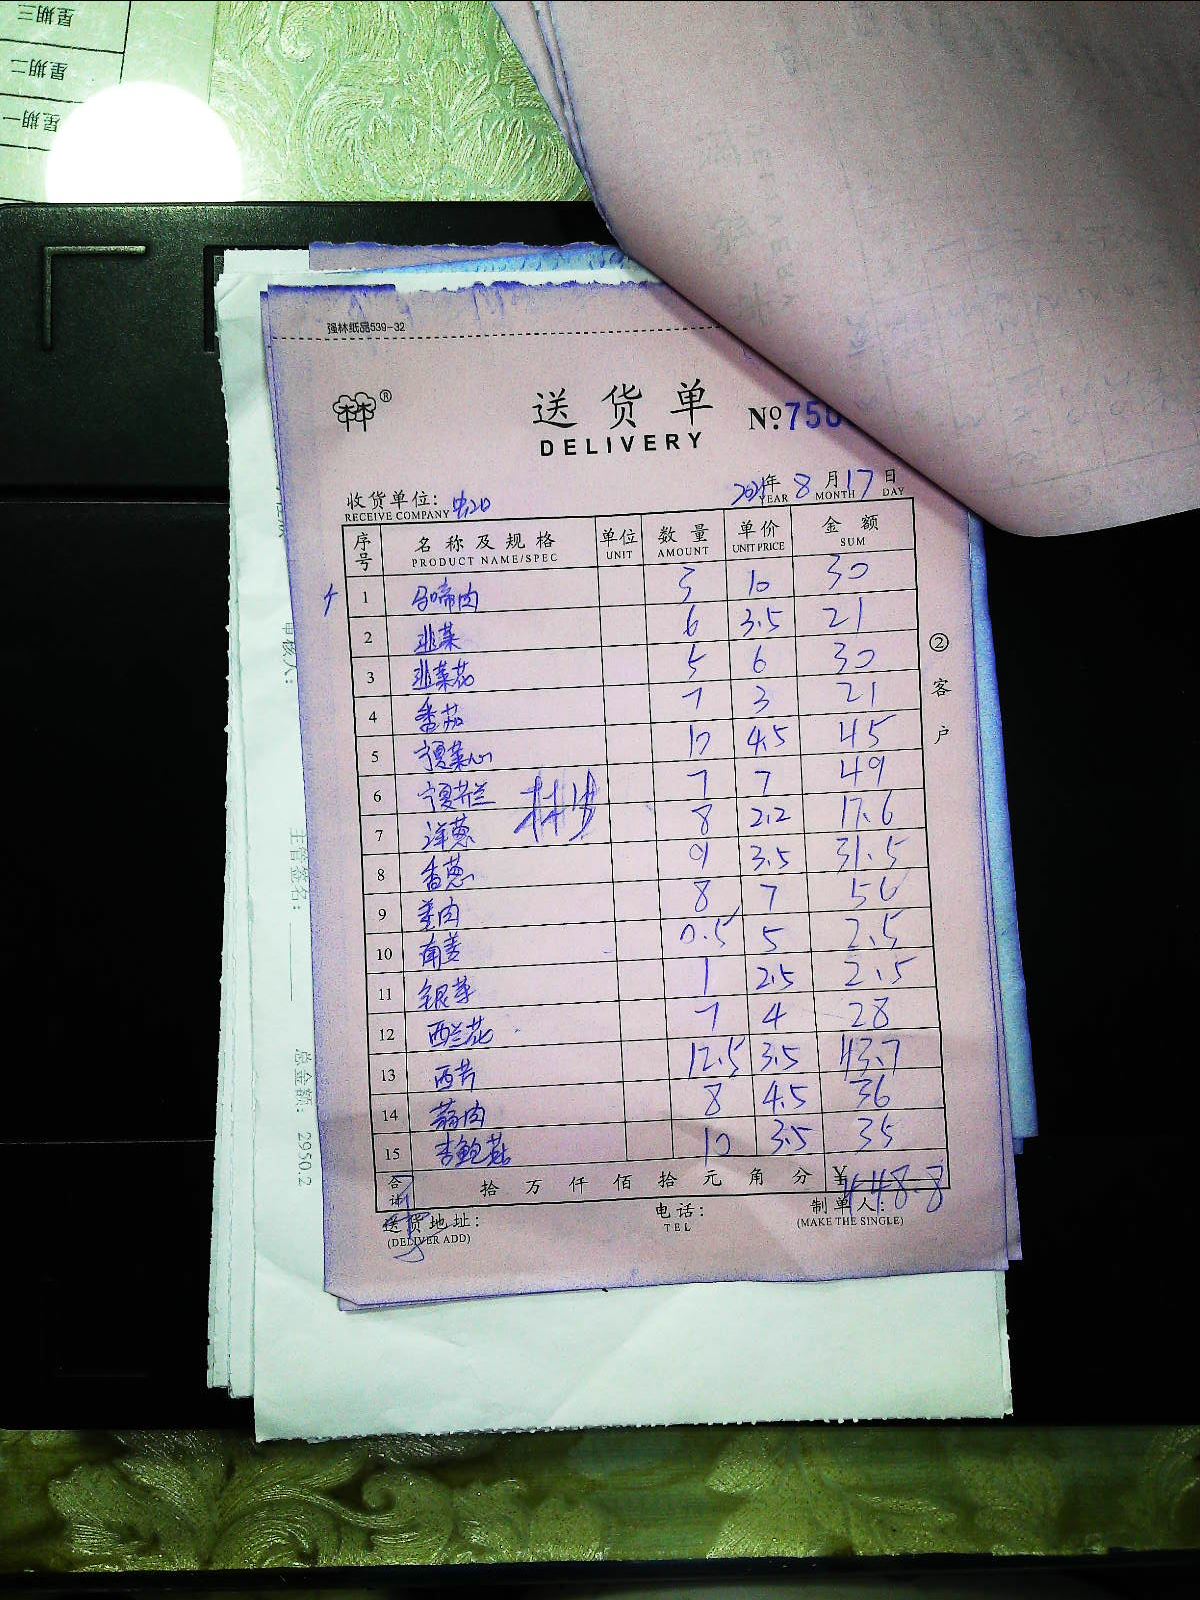 星期三
星期二
星期一
强林纸品539-32
林林 ®
送货单
DELIVERY
№ 750
收货单位:
RECEIVE COMPANY
2021年 8 月 17 日
YEAR MONTH DAY
序号 名称及规格 单位 数量 单价 金额
PRODUCT NAME/SPEC UNIT AMOUNT UNIT PRICE SUM
1 马啼肉 3 10 30
2 韭菜 6 3.5 21
3 韭菜花 5 6 30
4 番茄 7 3 21
5 宁夏菜心 10 4.5 45
6 宁夏芥兰 7 7 49
7 洋葱 8 2.2 17.6
8 香葱 9 3.5 31.5
9 姜肉 8 7 56
10 南姜 0.5 5 2.5
11 银芽 1 2.5 2.5
12 西兰花 7 4 28
13 西芹 12.5 3.5 43.7
14 蒜肉 8 4.5 36
15 杏鲍菇 10 3.5 35
合计 拾 万 仟 佰 拾 元 角 分 ¥ 448.8
送货地址:
(DELIVER ADD)
电话:
TEL
制单人:
(MAKE THE SINGLE)
② 客户
审核人:
主管签名:
总金额: 2950.2